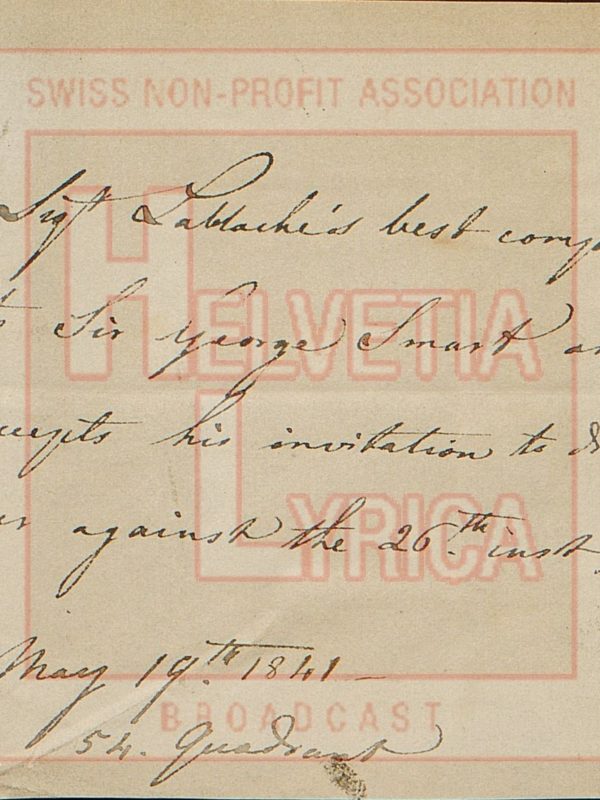 SWISS NON-PROFIT ASSOCIATION
HELVETIA
LYRICA
BROADCAST
Sigr Lablache's best comp
to Sir George Smart an
ccepts his invitation to di
er against the 26.th inst
May 19.th 1841 -
54. Quadrant